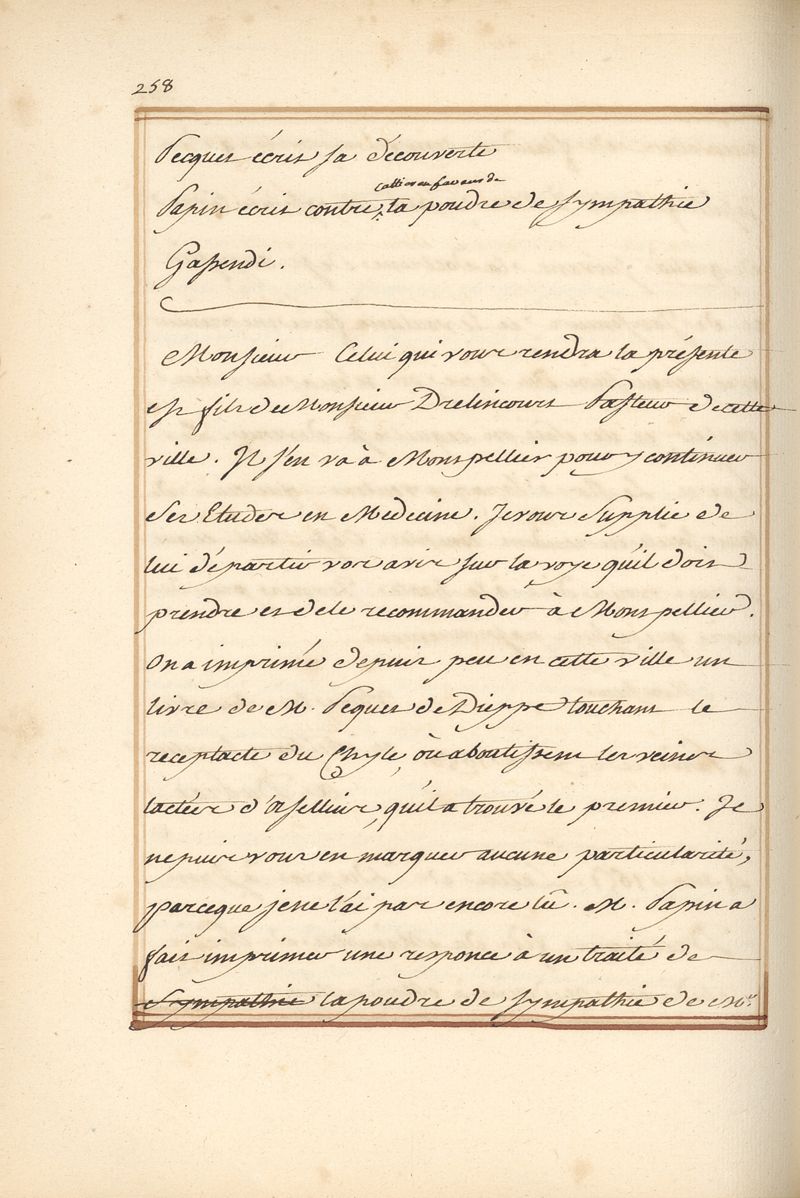 258
Pecquet écrit sa découverte
Cattier en faveur de
Papin écrit contre la poudre de sympathie
Gassendi.
Monsieur Celui qui vous rendra la présente
est fils de Monsieur Drelincourt Pasteur de cette
ville. Il s'en va à Montpellier pour y continuer
ses Etudes en Medecine. Je vous supplie de
lui départir vos avis sur la voye qu'il doit
prendre et de le recommander à Montpellier.
On a imprimé depuis peu en cette ville un
livre de M. Pequet de Dieppe touchant le
receptacle du Chyle, où aboutissent les veines
lactées d'Asellius, qu'il a trouvé le premier. Je
ne puis vous en marquer aucune particularité,
parceque je ne l'ai pas encore lû. M. Papin a
fait imprimer une responce à un traité de
sympathie la poudre de sympathie de Mr.